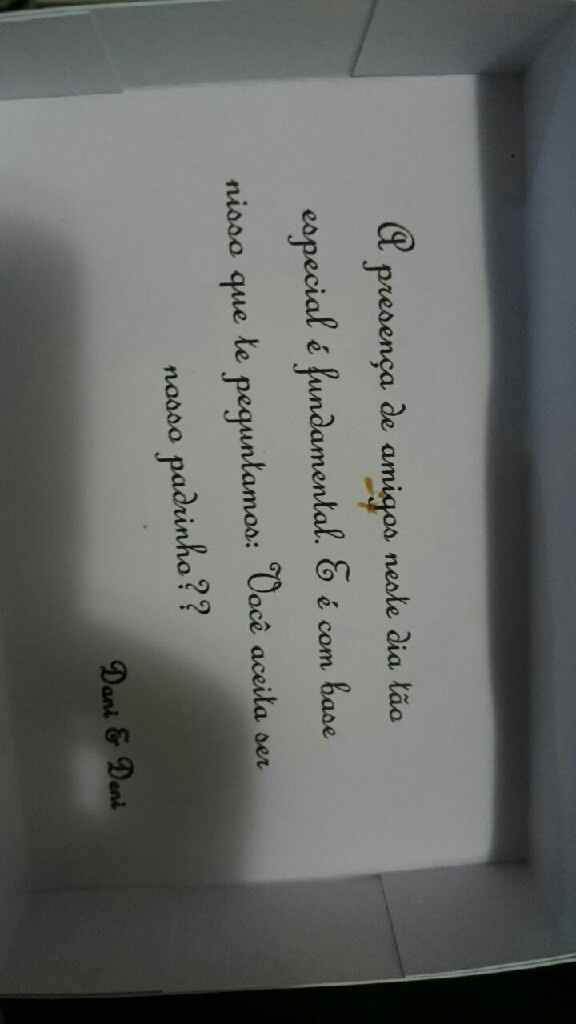 A presença de amigos neste dia tão
especial é fundamental. E é com base
nisso que te peguntamos: Você aceita ser
nosso padrinho??
Dani & Dani